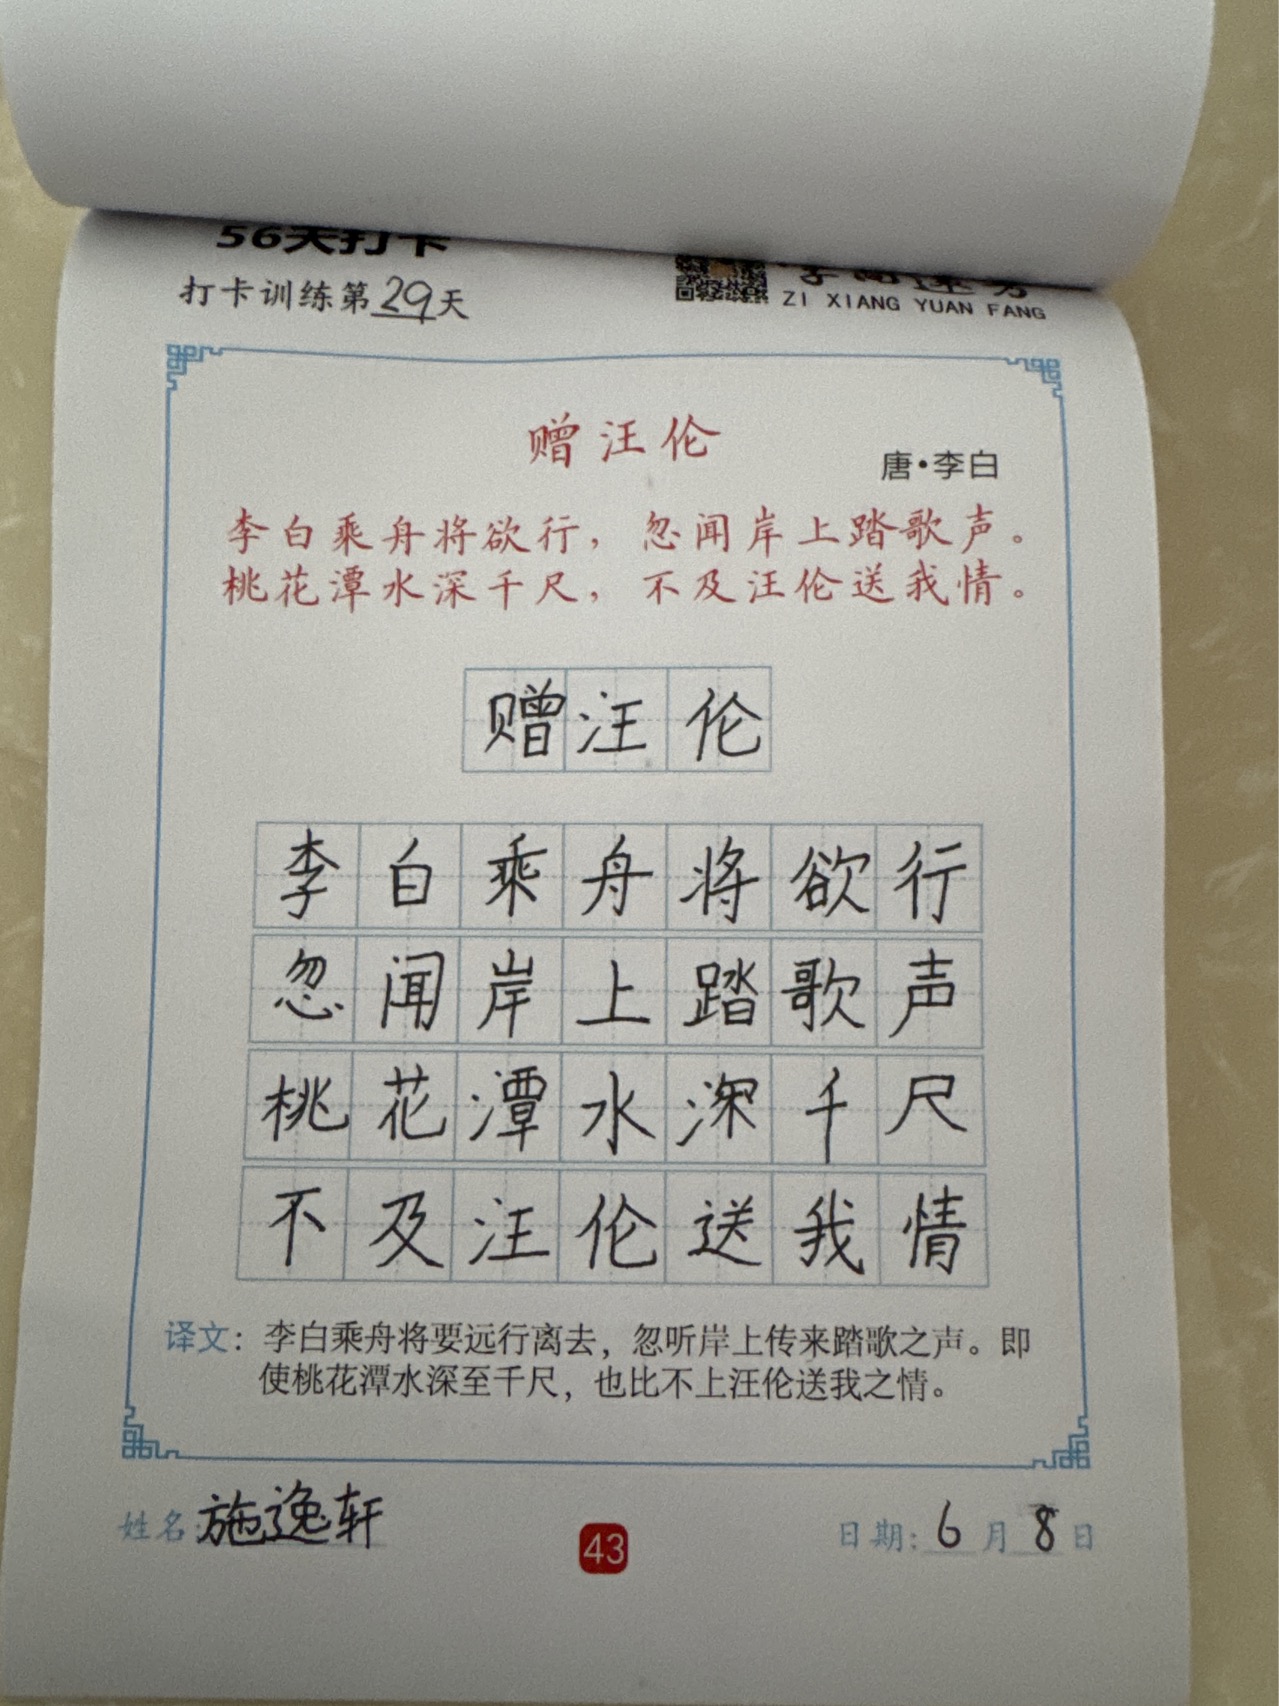 56天打卡
打卡训练第29天
ZI XIANG YUAN FANG
赠汪伦
唐·李白
李白乘舟将欲行，忽闻岸上踏歌声。
桃花潭水深千尺，不及汪伦送我情。
赠汪伦
李白乘舟将欲行
忽闻岸上踏歌声
桃花潭水深千尺
不及汪伦送我情
译文：李白乘舟将要远行离去，忽听岸上传来踏歌之声。即
使桃花潭水深至千尺，也比不上汪伦送我之情。
姓名：施逸轩
43
日期：6月8日